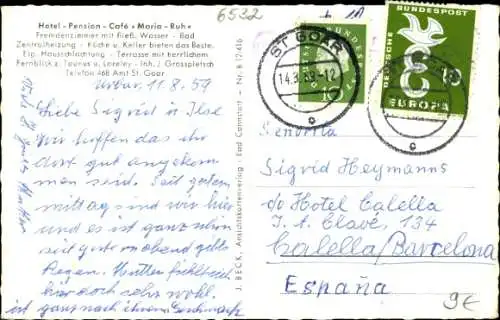 6532
Hotel - Pension - Café « Maria - Ruh »
Fremdenzimmer mit fließ. Wasser - Bad
Zentralheizung - Küche u. Keller bieten das Beste.
Eig. Hausschlachtung - Terrasse mit herrlichem
Fernblick a. Taunus u. Loreley - Inh. J. Grosspietsch
Telefon 468 Amt St. Goar
Urbar, 11.8.59
Liebe Sigrid u Ilse
Wir hoffen das ihr
dort gut angekom-
men seid. Seit gestern
mittag sind wir hier
und es ist ganz schön
seit gestern abend gehts
Regen. Mutten
hier doch sehr wohl.
ist ganz nach ihrem Geschmack
J. BECK, Ansichtskartenverlag - Bad Cannstatt - Nr. B 12 416
ST GOAR
14.8.59-12
c
DEUTSCHE BUNDESPOST
10
EUROPA
Señorita
Sigrid Heymanns
c/o Hotel Calella
J. A. Clavé, 134
Calella/Barcelona
España
9€